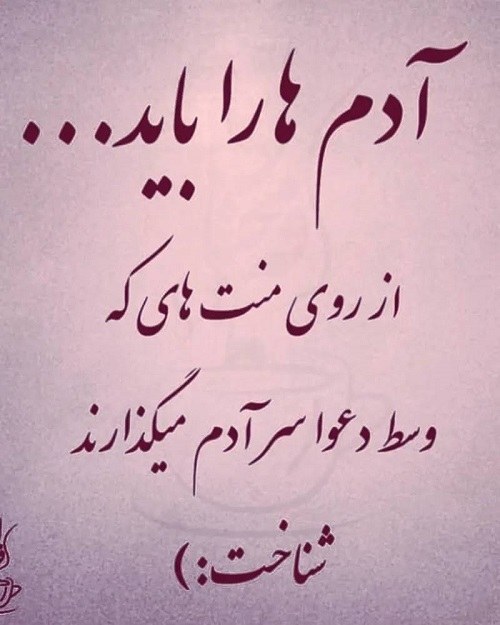 آدم ها را باید...
از روی منت های که
وسط دعوا سر آدم میگذارند
شناخت:)